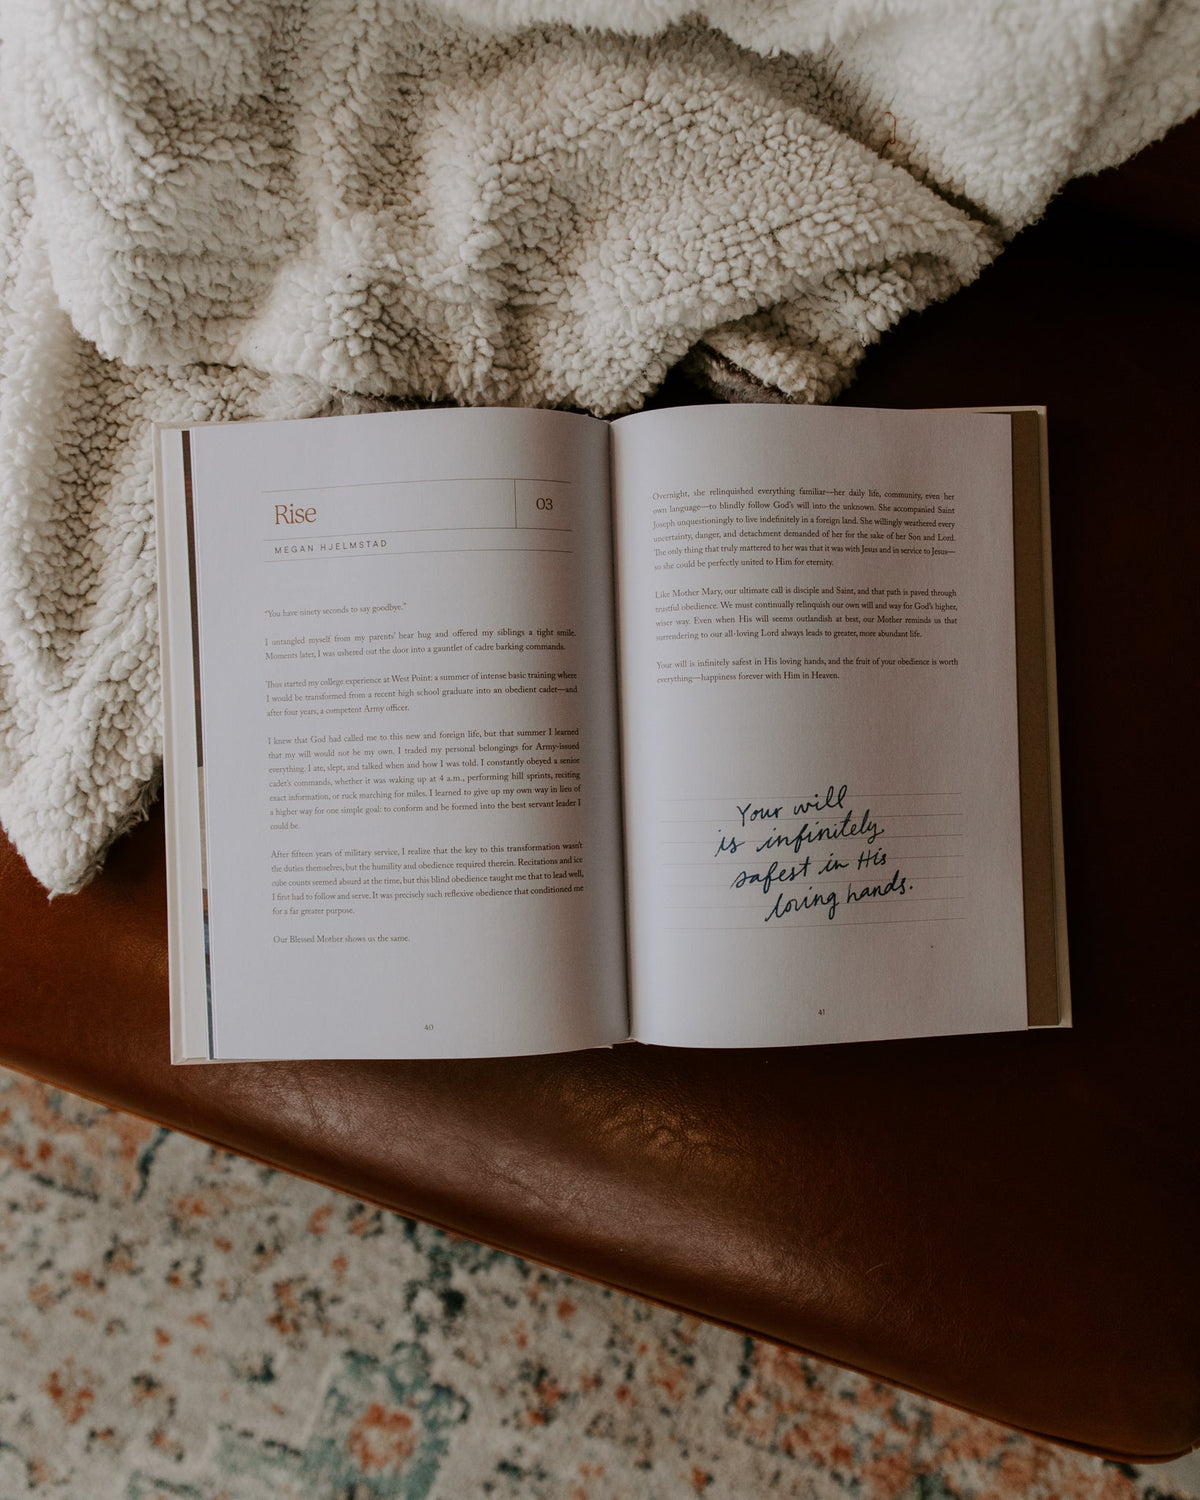 Rise
03
MEGAN HJELMSTAD
“You have ninety seconds to say goodbye.”
I untangled myself from my parents’ bear hug and offered my siblings a tight smile.
Moments later, I was ushered out the door into a gauntlet of cadre barking commands.
Thus started my college experience at West Point: a summer of intense basic training where
I would be transformed from a recent high school graduate into an obedient cadet—and
after four years, a competent Army officer.
I knew that God had called me to this new and foreign life, but that summer I learned
that my will would not be my own. I traded my personal belongings for Army-issued
everything. I ate, slept, and talked when and how I was told. I constantly obeyed a senior
cadet’s commands, whether it was waking up at 4 a.m., performing hill sprints, reciting
exact information, or ruck marching for miles. I learned to give up my own way in lieu of
a higher way for one simple goal: to conform and be formed into the best servant leader I
could be.
After fifteen years of military service, I realize that the key to this transformation wasn’t
the duties themselves, but the humility and obedience required therein. Recitations and ice
cube counts seemed absurd at the time, but this blind obedience taught me that to lead well,
I first had to follow and serve. It was precisely such reflexive obedience that conditioned me
for a far greater purpose.
Our Blessed Mother shows us the same.
40
Overnight, she relinquished everything familiar—her daily life, community, even her
own language—to blindly follow God’s will into the unknown. She accompanied Saint
Joseph unquestioningly to live indefinitely in a foreign land. She willingly weathered every
uncertainty, danger, and detachment demanded of her for the sake of her Son and Lord.
The only thing that truly mattered to her was that it was with Jesus and in service to Jesus—
so she could be perfectly united to Him for eternity.
Like Mother Mary, our ultimate call is disciple and Saint, and that path is paved through
trustful obedience. We must continually relinquish our own will and way for God’s higher,
wiser way. Even when His will seems outlandish at best, our Mother reminds us that
surrendering to our all-loving Lord always leads to greater, more abundant life.
Your will is infinitely safest in His loving hands, and the fruit of your obedience is worth
everything—happiness forever with Him in Heaven.
Your will
is infinitely
safest in His
loving hands.
41